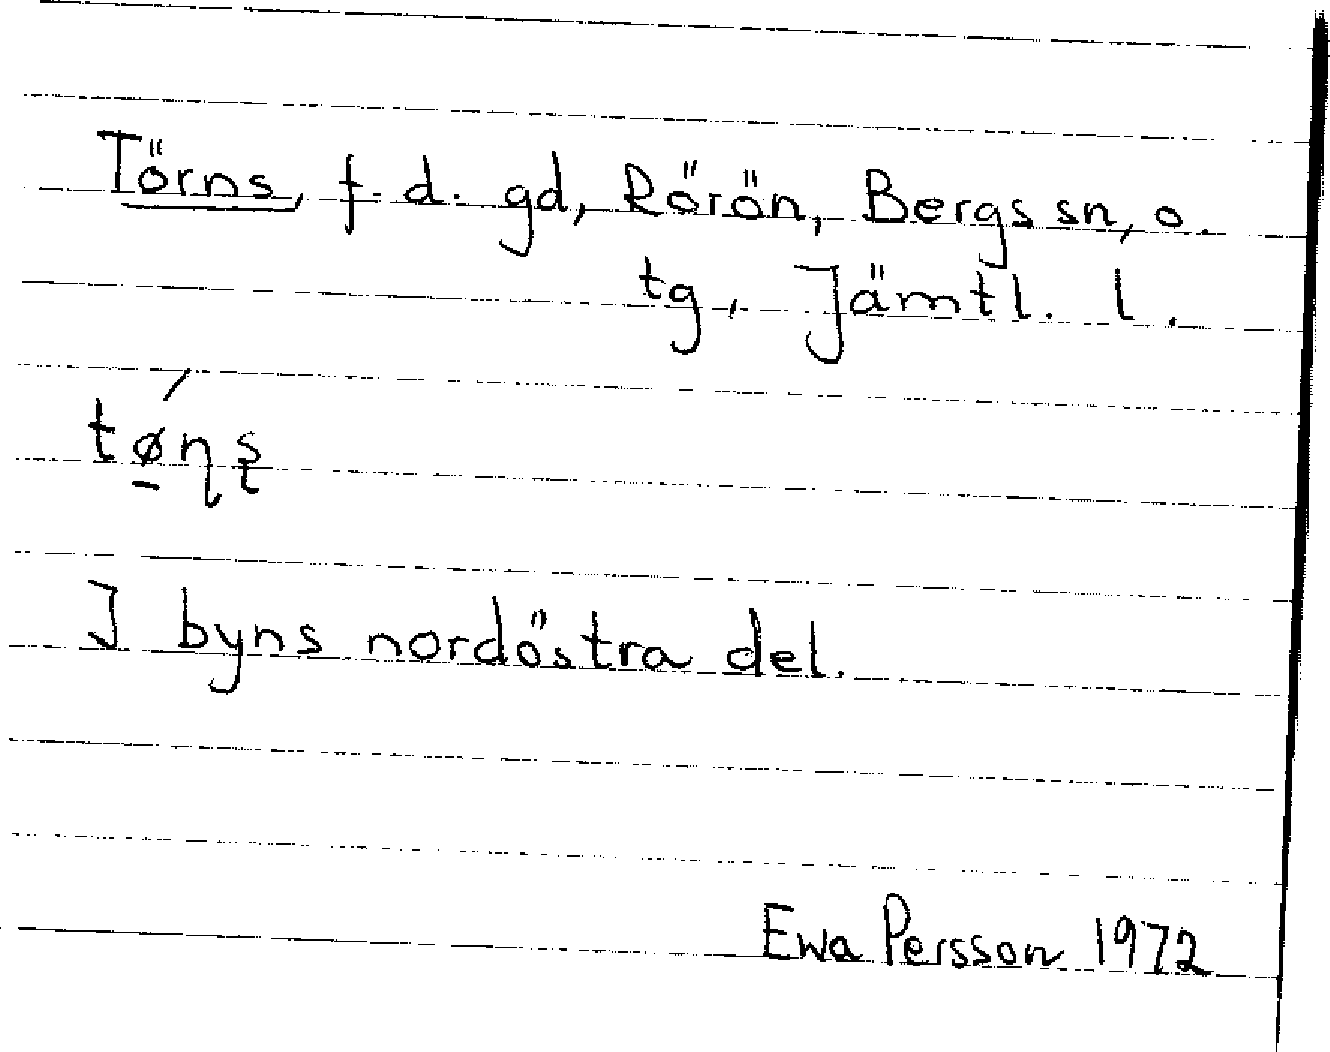 Törns, f. d. gd, Rörön, Bergs sn, o.
tg, Jämtl. l.
tǿ̠ɳʂ
I byns nordöstra del.
Ewa Persson 1972